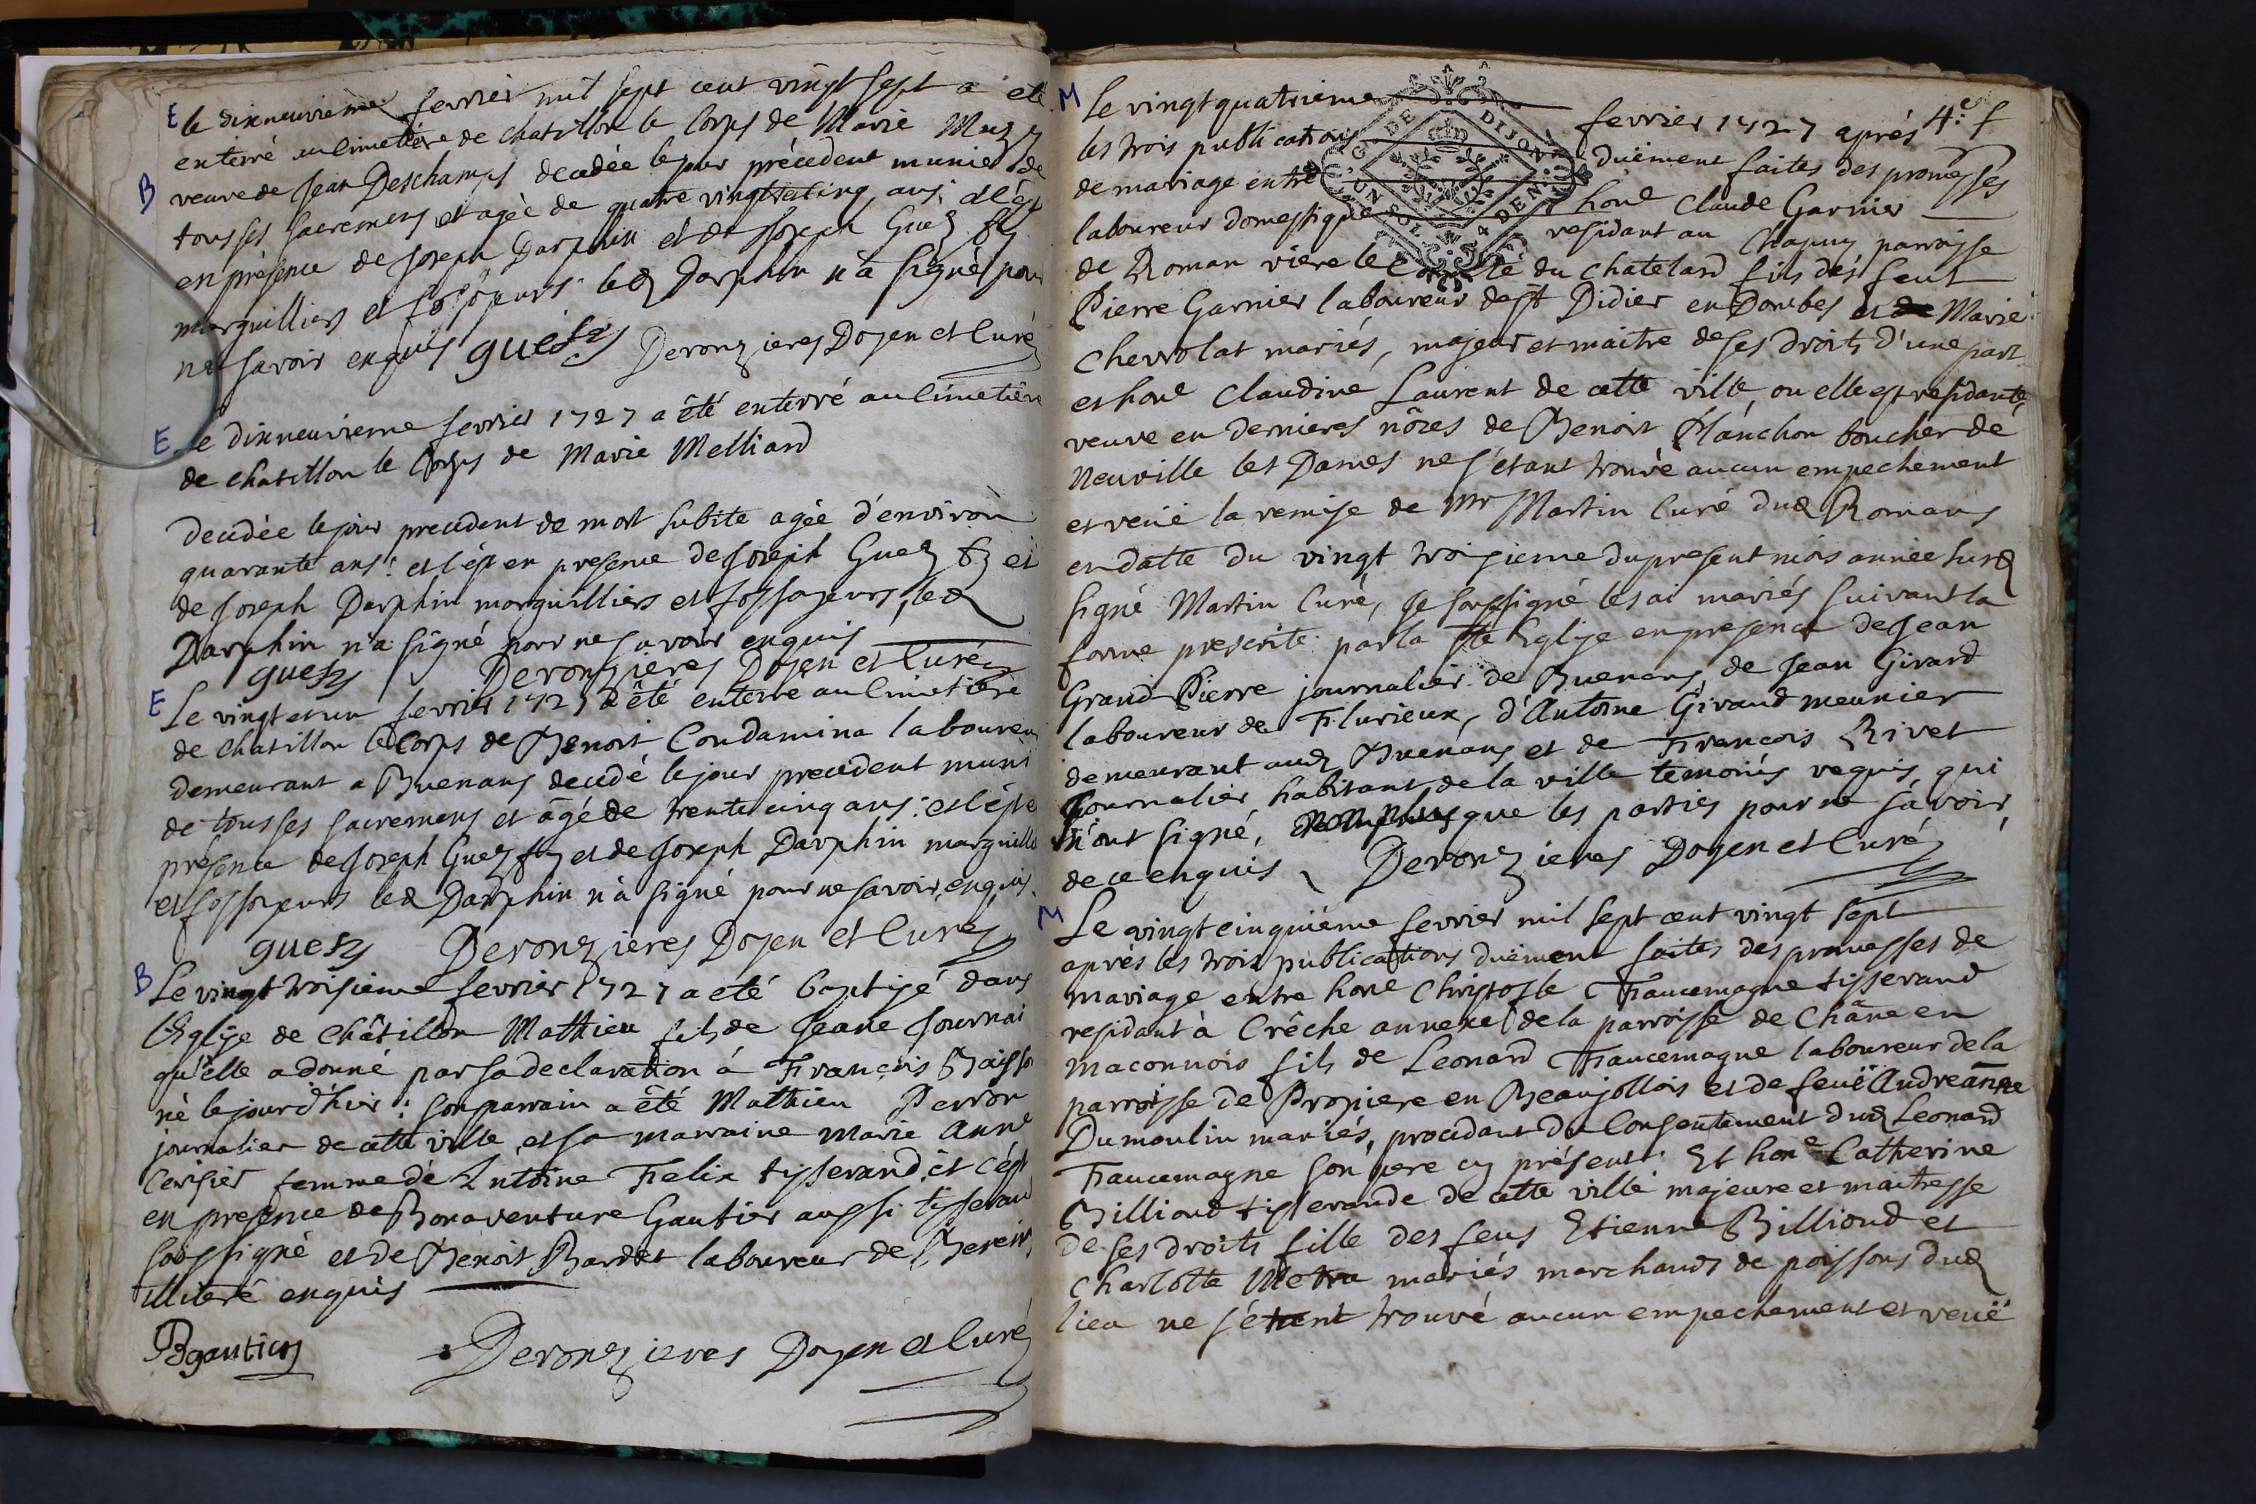 E le dixneuvieme fevrier mil sept cent vingt sept a eté
enterré au cimetiere de chatillon le Corps de Marie
B veuve de Jean Deschamps decedée le jour précedent munie de
tous ses sacremens et agée de quatre vingt cinq ans, et c'est
en présence de Joseph Darphin et de Joseph Guez
marguilliers et fossoyeurs led Darphin n'a signé pour
ne savoir enquis guesz Deronzieres Doyen et Curé
E Le dixneuvieme fevrier 1727 a été enterré au cimetiere
de chatillon le Corps de Marie Melliard
decedée le jour precedent de mort subite agée d'environ
quarante ans : et c'est en presence de Joseph Guez et
de Joseph Darphin marguilliers et fossoyeurs, led
Darphin n'a signé pour ne savoir enquis
guesz Deronzieres Doyen et Curé
E Le vingt et un fevrier 1727 a été enterré au cimetiere
de chatillon le Corps de Benoit Condamina laboureur
demeurant a Buenans decedé le jour precedent muni
de tous ses sacremens et âgé de trente cinq ans : et c'est
présence de Joseph Guez et de Joseph Darphin marguill
et fossoyeurs led Darphin n'a signé pour ne savoir enquis.
guesz Deronzieres Doyen et Curé
B Le vingt troisieme fevrier 1727 a eté baptisé dans
l'Eglise de châtillon Mathieu fils de Jeane Journai
qu'elle a donné par sa declaration à François
né le jour d'hier : son parrain a êté Mathieu Perron
journalier de cette ville et sa marraine Marie Anne
Cerisier femme de Antoine Felix tisserand, et c'est
en presence de Bonaventure Gautier aussi tisserand
soussigné et de Benoit Bardet laboureur de
illiteré enquis
Bgautier Deronzieres Doyen et Curé
4.e f
M Le vingtquatrieme fevrier 1727 aprés
les trois publications duëment faites des promesses
de mariage entre hone Claude Garnier
laboureur domestique residant au Chapuy parroisse
de Roman viere le Comté du Chatelard fils des feut
Pierre Garnier laboureur de st Didier en Dombes et de Marie
Chevrolat mariés, majeur et maitre de ses droits d'une part
et hone Claudine Laurent de cette ville ou elle est residante,
veuve en dernieres nôces de Benoit Plánchon boucher de
Neuville les Dames ne s'étant trouvé aucun empechement
et veüe la remise de Mr Martin Curé dud Romans
en datte du vingt troisieme du present mois année susd
signé Martin Curé, je soussigné les ai mariés suivant la
forme prescrite par la ste Eglise en presence de Jean
Grand Pierre journalier de Buenans, de Jean Girard
laboureur de Flurieux, d'Antoine Giraud meunier
demeurant aud Buenans et de François Rivet
journalier habitant de la ville temoins requis qui
n'ont signé, non plus que les parties pour ne savoir,
de ce enquis Deronzieres Doyen et Curé
M Le vingt cinquiéme fevrier mil sept cent vingt sept
aprés les trois publications duëment faites des promesses de
mariage entre hone Christofle Francemagne tisserand
residant à Crêche annexe de la parroisse de Châne en
maconnois fils de Leonard Francemagne laboureur de la
parroisse de Propiere en Beaujollois et de feuë Andreanne
Dumoulin mariés, procedant du Consentement dud Leonard
Francemagne son pere cy présent. Et hone Catherine
Billioud tisserande de cette ville majeure et maitresse
de ses droits fille des feus Etienne Billioud et
Charlotte Metra mariés marchands de poissons dud
lieu ne s'étant trouvé aucun empechement et veuë